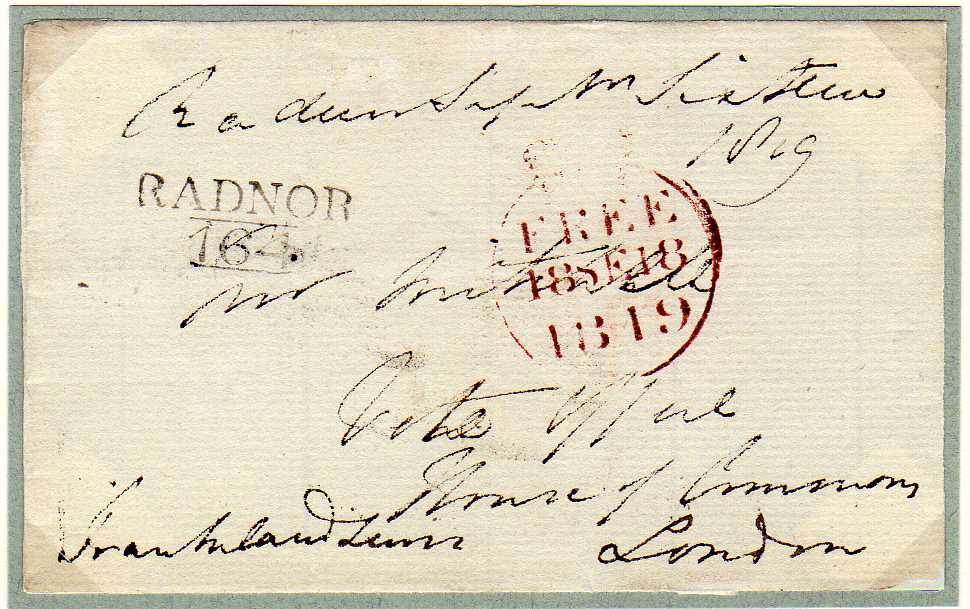 Radnor Sept Sixteen
1819
RADNOR
164
FREE
18SE18
1819
Mr Mitchell
Vote Office
House of Commons
London
Frankland Lewis